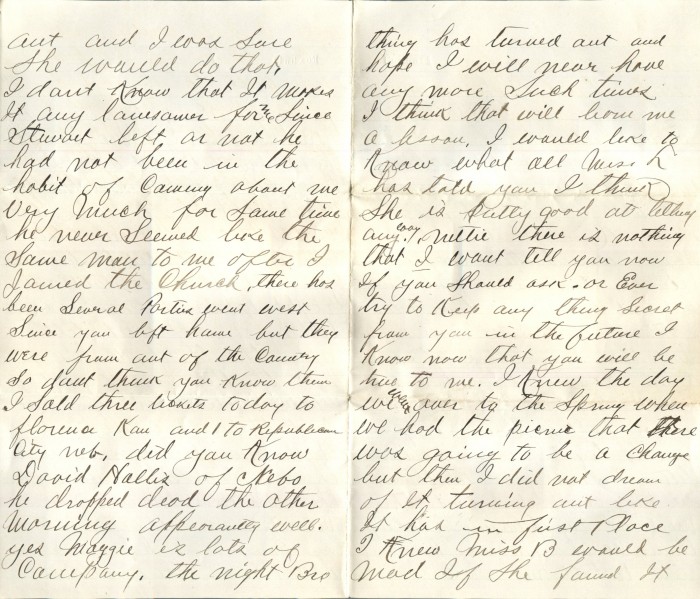 out and I was sure
She would do that,
I dont Know that It makes
It any lonesomer for me Since
Stewart left or not he
had not been in the
habit of Coming about me
very much for Some time
he never Seemed like the
Same man to me after I
Joined the Church, there has
been Several Parties went west
Since you left home but they
were from out of the Country
So dont think you Know them
I Sold three tickets today to
florence Kan and 1 to Republican
City neb. did you Know
David Nallis of Nebo,
he dropped dead the other
morning appearantly well.
yes Maggie is lots of
Company. the night Bro
thing has turned out and
hope I will never have
any more Such times
I think that will learn me
a lesson. I would like to
Know what all Miss L
has told you I think
She is Pretty good at telling
any. Nettie there is nothing
that I want tell you now
If you Should ask. or Ever
try to Keep any thing Secret
from you in the future I
Know now that you will be
true to me. I Knew the day
we were over to the Spring when
we had the picnic that there
was going to be a Change
but then I did not dream
of It turning out like
It has in first Place
I Knew Miss B would be
mad If She found It